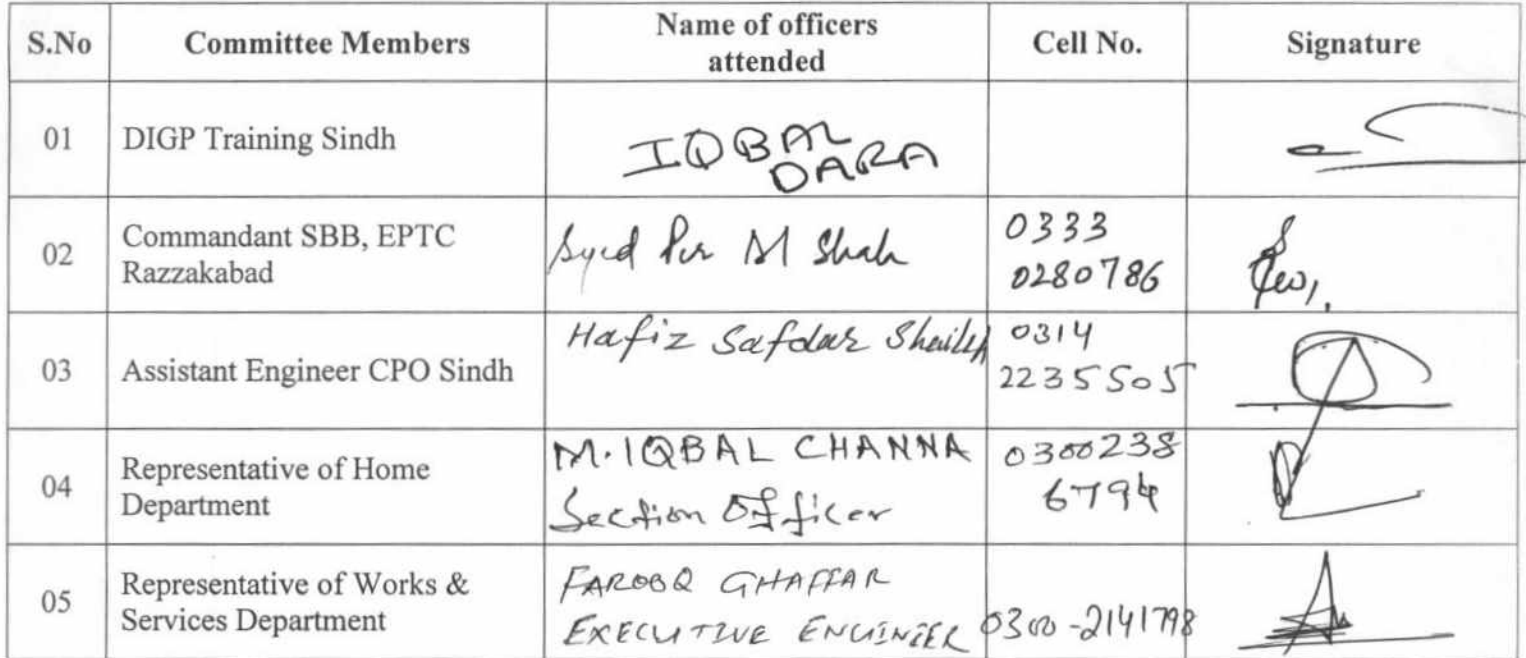 S.No Committee Members Name of officers attended Cell No. Signature
01 DIGP Training Sindh IQBAL DARA
02 Commandant SBB, EPTC Razzakabad Syed Pir M Shah 0333 0280786
03 Assistant Engineer CPO Sindh Hafiz Safdar Shaikh 0314 2235505
04 Representative of Home Department M. IQBAL CHANNA Section Officer 0300238 6794
05 Representative of Works & Services Department FAROOQ GHAFFAR EXECUTIVE ENGINEER 0300-2141798